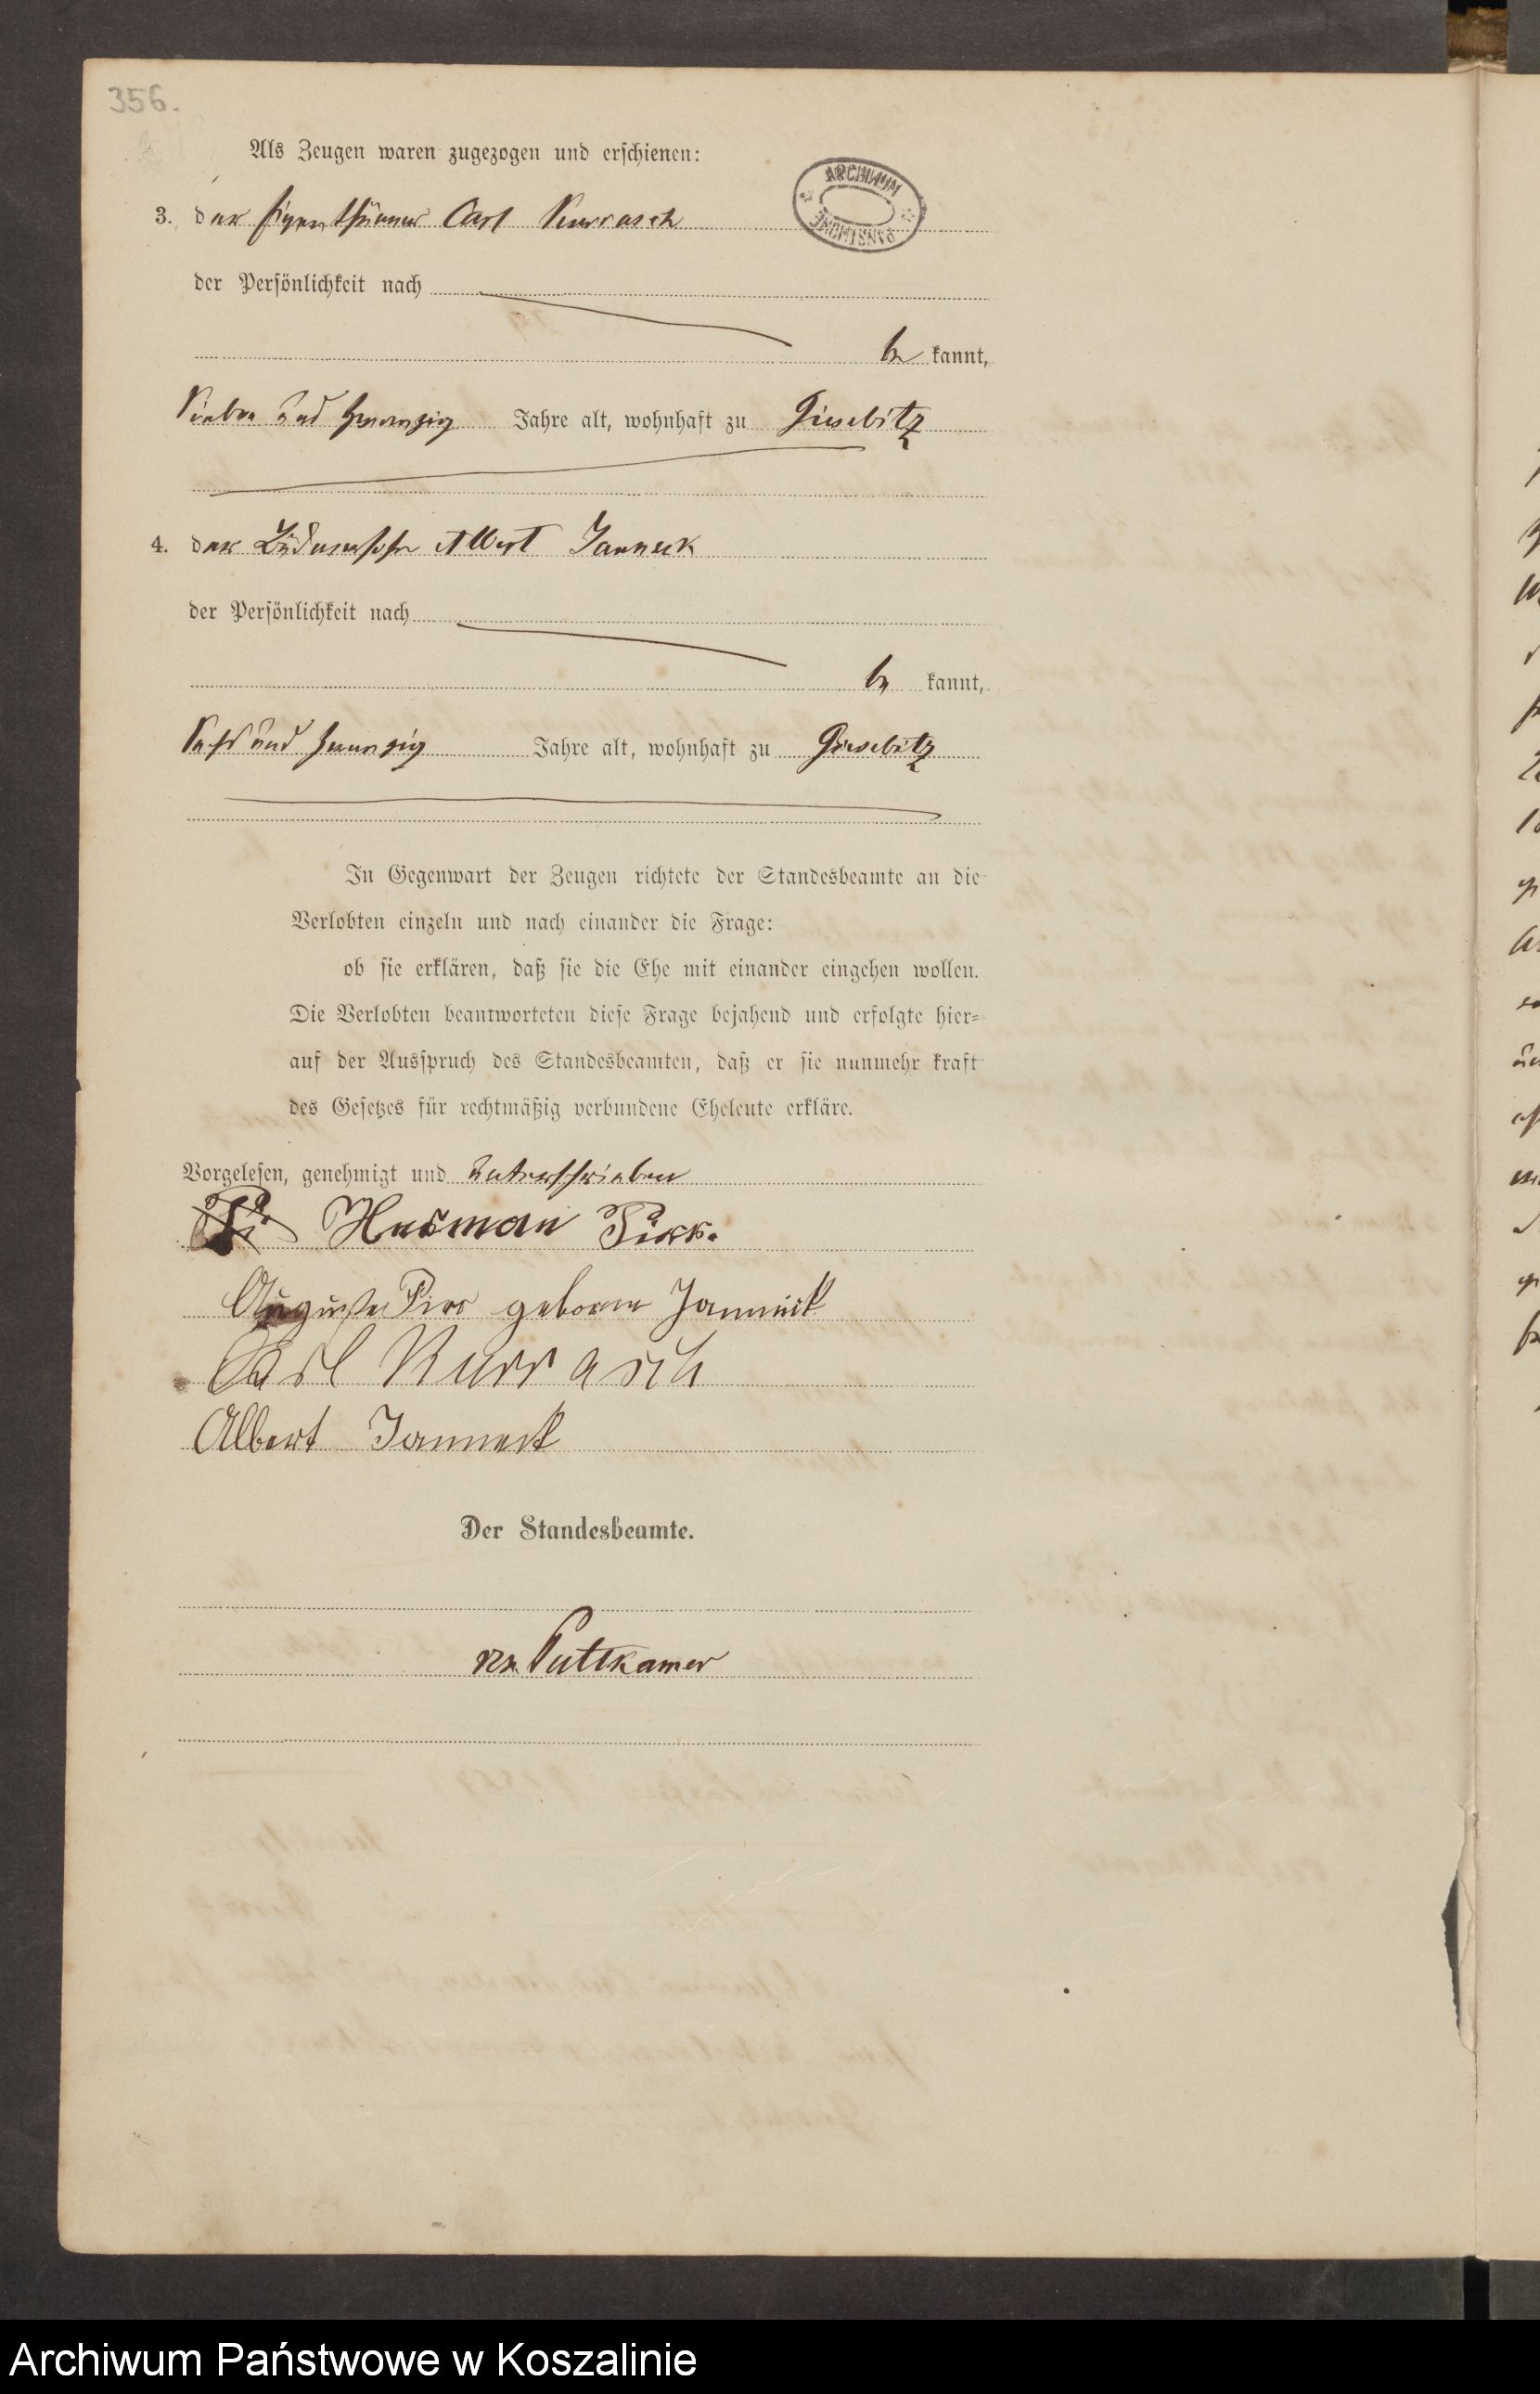 356.
Als Zeugen waren zugezogen und erschienen:
ARCHIWUM
PAŃSTWOWE
3. der Eigenthümer Carl Kurrasch
der Persönlichkeit nach
be kannt,
Sieben und zwanzig Jahre alt, wohnhaft zu Giesebitz
4. der Büdnersohn Albert Janneck
der Persönlichkeit nach
be kannt,
Sechs und zwanzig Jahre alt, wohnhaft zu Giesebitz
In Gegenwart der Zeugen richtete der Standesbeamte an die
Verlobten einzeln und nach einander die Frage:
ob sie erklären, daß sie die Ehe mit einander eingehen wollen.
Die Verlobten beantworteten diese Frage bejahend und erfolgte hier=
auf der Ausspruch des Standesbeamten, daß er sie nunmehr kraft
des Gesetzes für rechtmäßig verbundene Eheleute erkläre.
Vorgelesen, genehmigt und unterschrieben
Herman Pirr.
Auguste Pirr geborne Janneck
Carl Kurrasch
Albert Janneck
Der Standesbeamte.
von Puttkamer
Archiwum Państwowe w Koszalinie